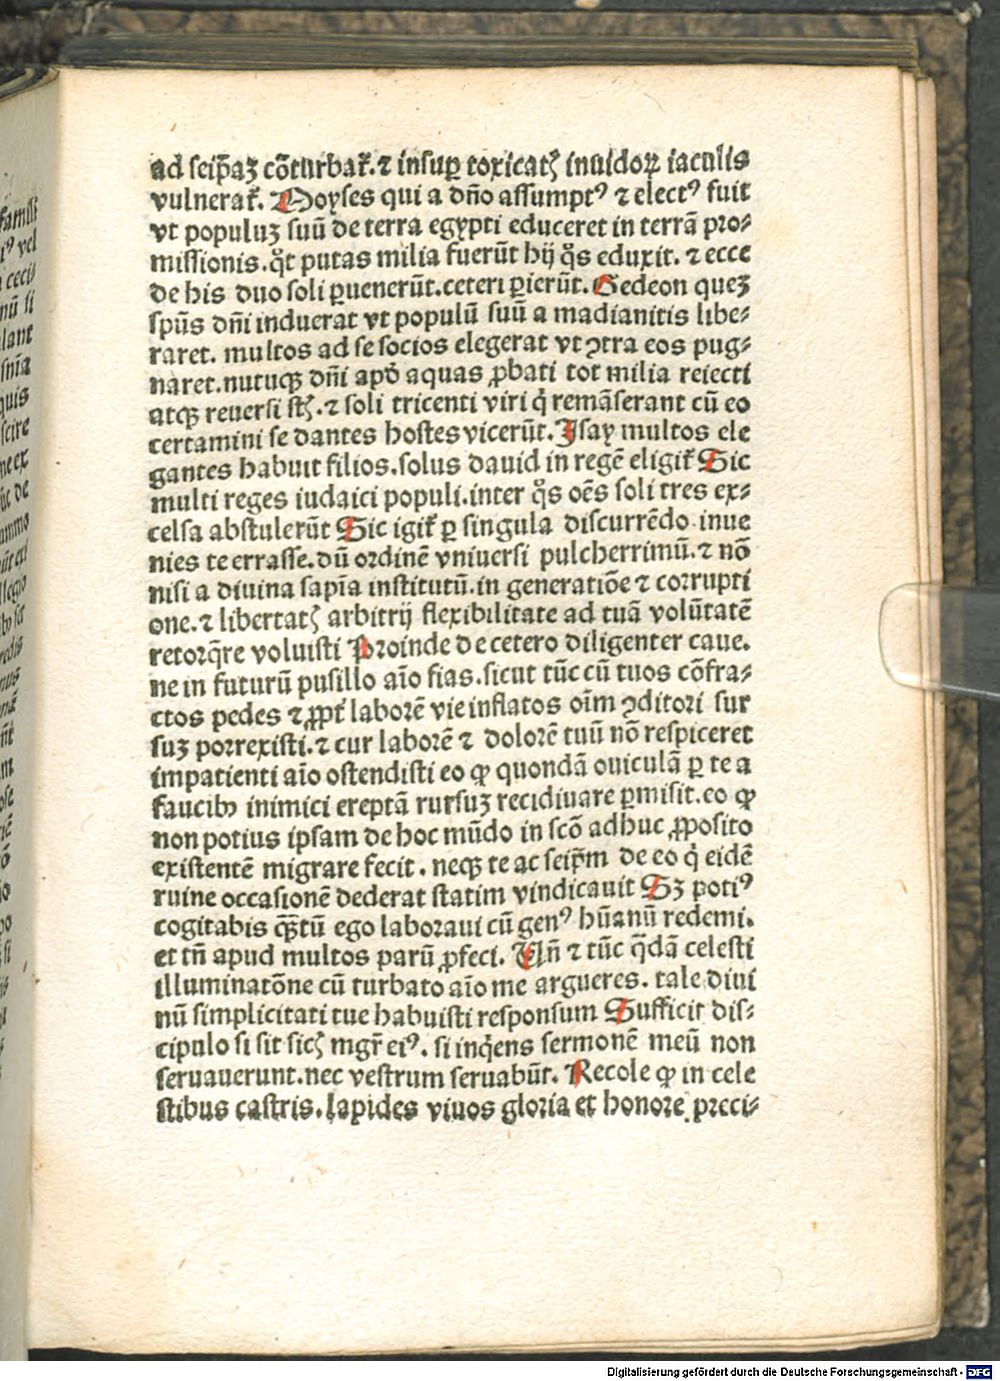 ad seip̄aꝫ cōturbat᷑. ⁊ insuꝑ toxicatꝭ inuidoꝝ iaculis
vulnerat᷑. Moyses qui a dn̄o assumptꝰ ⁊ electꝰ fuit
vt populuꝫ suū de terra egypti educeret in terrā pro⸗
missionis. qͦt putas milia fuerūt hij qͦs eduxit. ⁊ ecce
de his duo soli ꝑuenerūt. ceteri ꝑierūt. Gedeon queꝫ
spūs dn̄i induerat vt populū suū a madianitis libe⸗
raret. multos ad se socios elegerat vt ꝯtra eos pug⸗
naret. nutuqꝫ dn̄i apď aquas ꝓbati tot milia reiecti
atqꝫ reuersi st̄ꝭ. ⁊ soli tricenti viri qͥ remāserant cū eo
certamini se dantes hostes vicerūt. Isay multos ele
gantes habuit filios. solus dauid in regē eligit᷑ Sic
multi reges iudaici populi. inter qͦs oēs soli tres ex⸗
celsa abstulerūt Sic igit᷑ ꝑ singula discurrēdo inue
nies te errasse. dū ordinē vniuersi pulcherrimū. ⁊ nō
nisi a diuina sapīa institutū. in generatiōe ⁊ corrupti
one. ⁊ libertatꝭ arbitrij flexibilitate ad tuā volūtatē
retorq̄re voluisti Proinde de cetero diligenter caue.
ne in futurū pusillo aīo fias. sicut tūc cū tuos cōfra⸗
ctos pedes ⁊ ꝓpt᷑ laborē vie inflatos oīm ꝯditori sur
suꝫ porrexisti. ⁊ cur laborē ⁊ dolorē tuū nō respiceret
impatienti aīo ostendisti eo ꝙ quondā ouiculā ꝑ te a
faucibꝫ inimici ereptā rursuꝫ recidiuare ꝑmisit. eo ꝙ
non potius ipsam de hoc mūdo in scō adhuc ꝓposito
existentē migrare fecit. neqꝫ te ac seip̄m de eo qͥ eidē
ruine occasionē dederat statim vindicauit Sꝫ potiꝰ
cogitabis qͣꝫtū ego laboraui cū genꝰ hūanū redemi.
et tn̄ apud multos parū ꝓfeci. Vn̄ ⁊ tūc q̄dā celesti
illuminatōne cū turbato aīo me argueres. tale diui
nū simplicitati tue habuisti responsum Sufficit dis⸗
cipulo si sit sicꝭ mgr̄ eiꝰ. si inqͥens sermonē meū non
seruauerunt. nec vestrum seruabūt. Recole ꝙ in cele
stibus castris. lapides viuos gloria et honore preci⸗
Digitalisierung gefördert durch die Deutsche Forschungsgemeinschaft - DFG